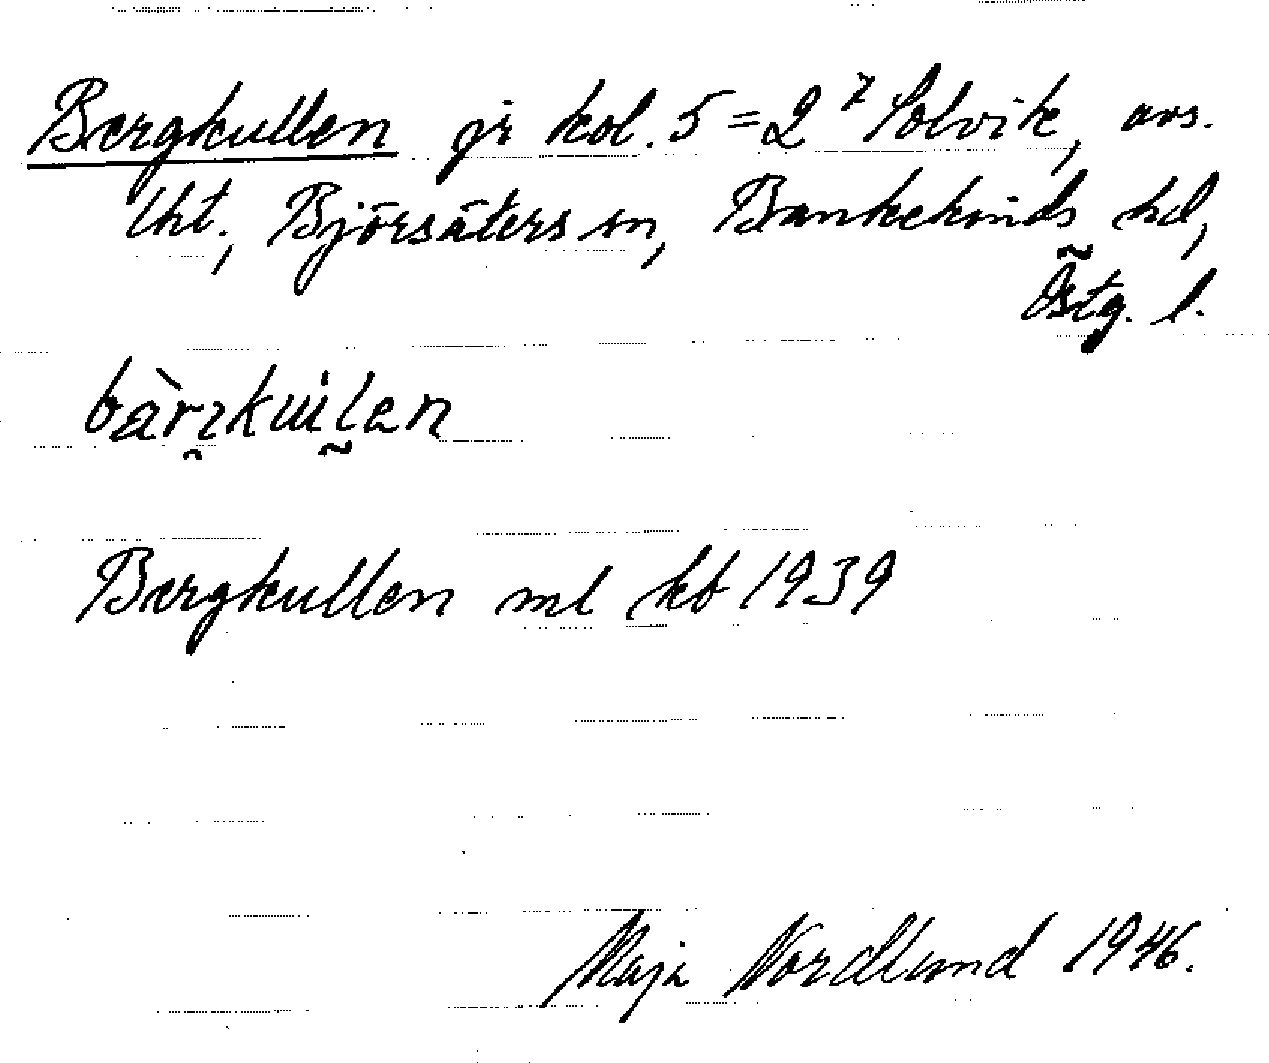 Bergkullen på kol. 5 = 2⁷ Solvik, avs.
lht., Björsäters sn, Bankekinds hd,
Östg. l.
Bergkullen ml kb 1939
Maja Nordlund 1946.